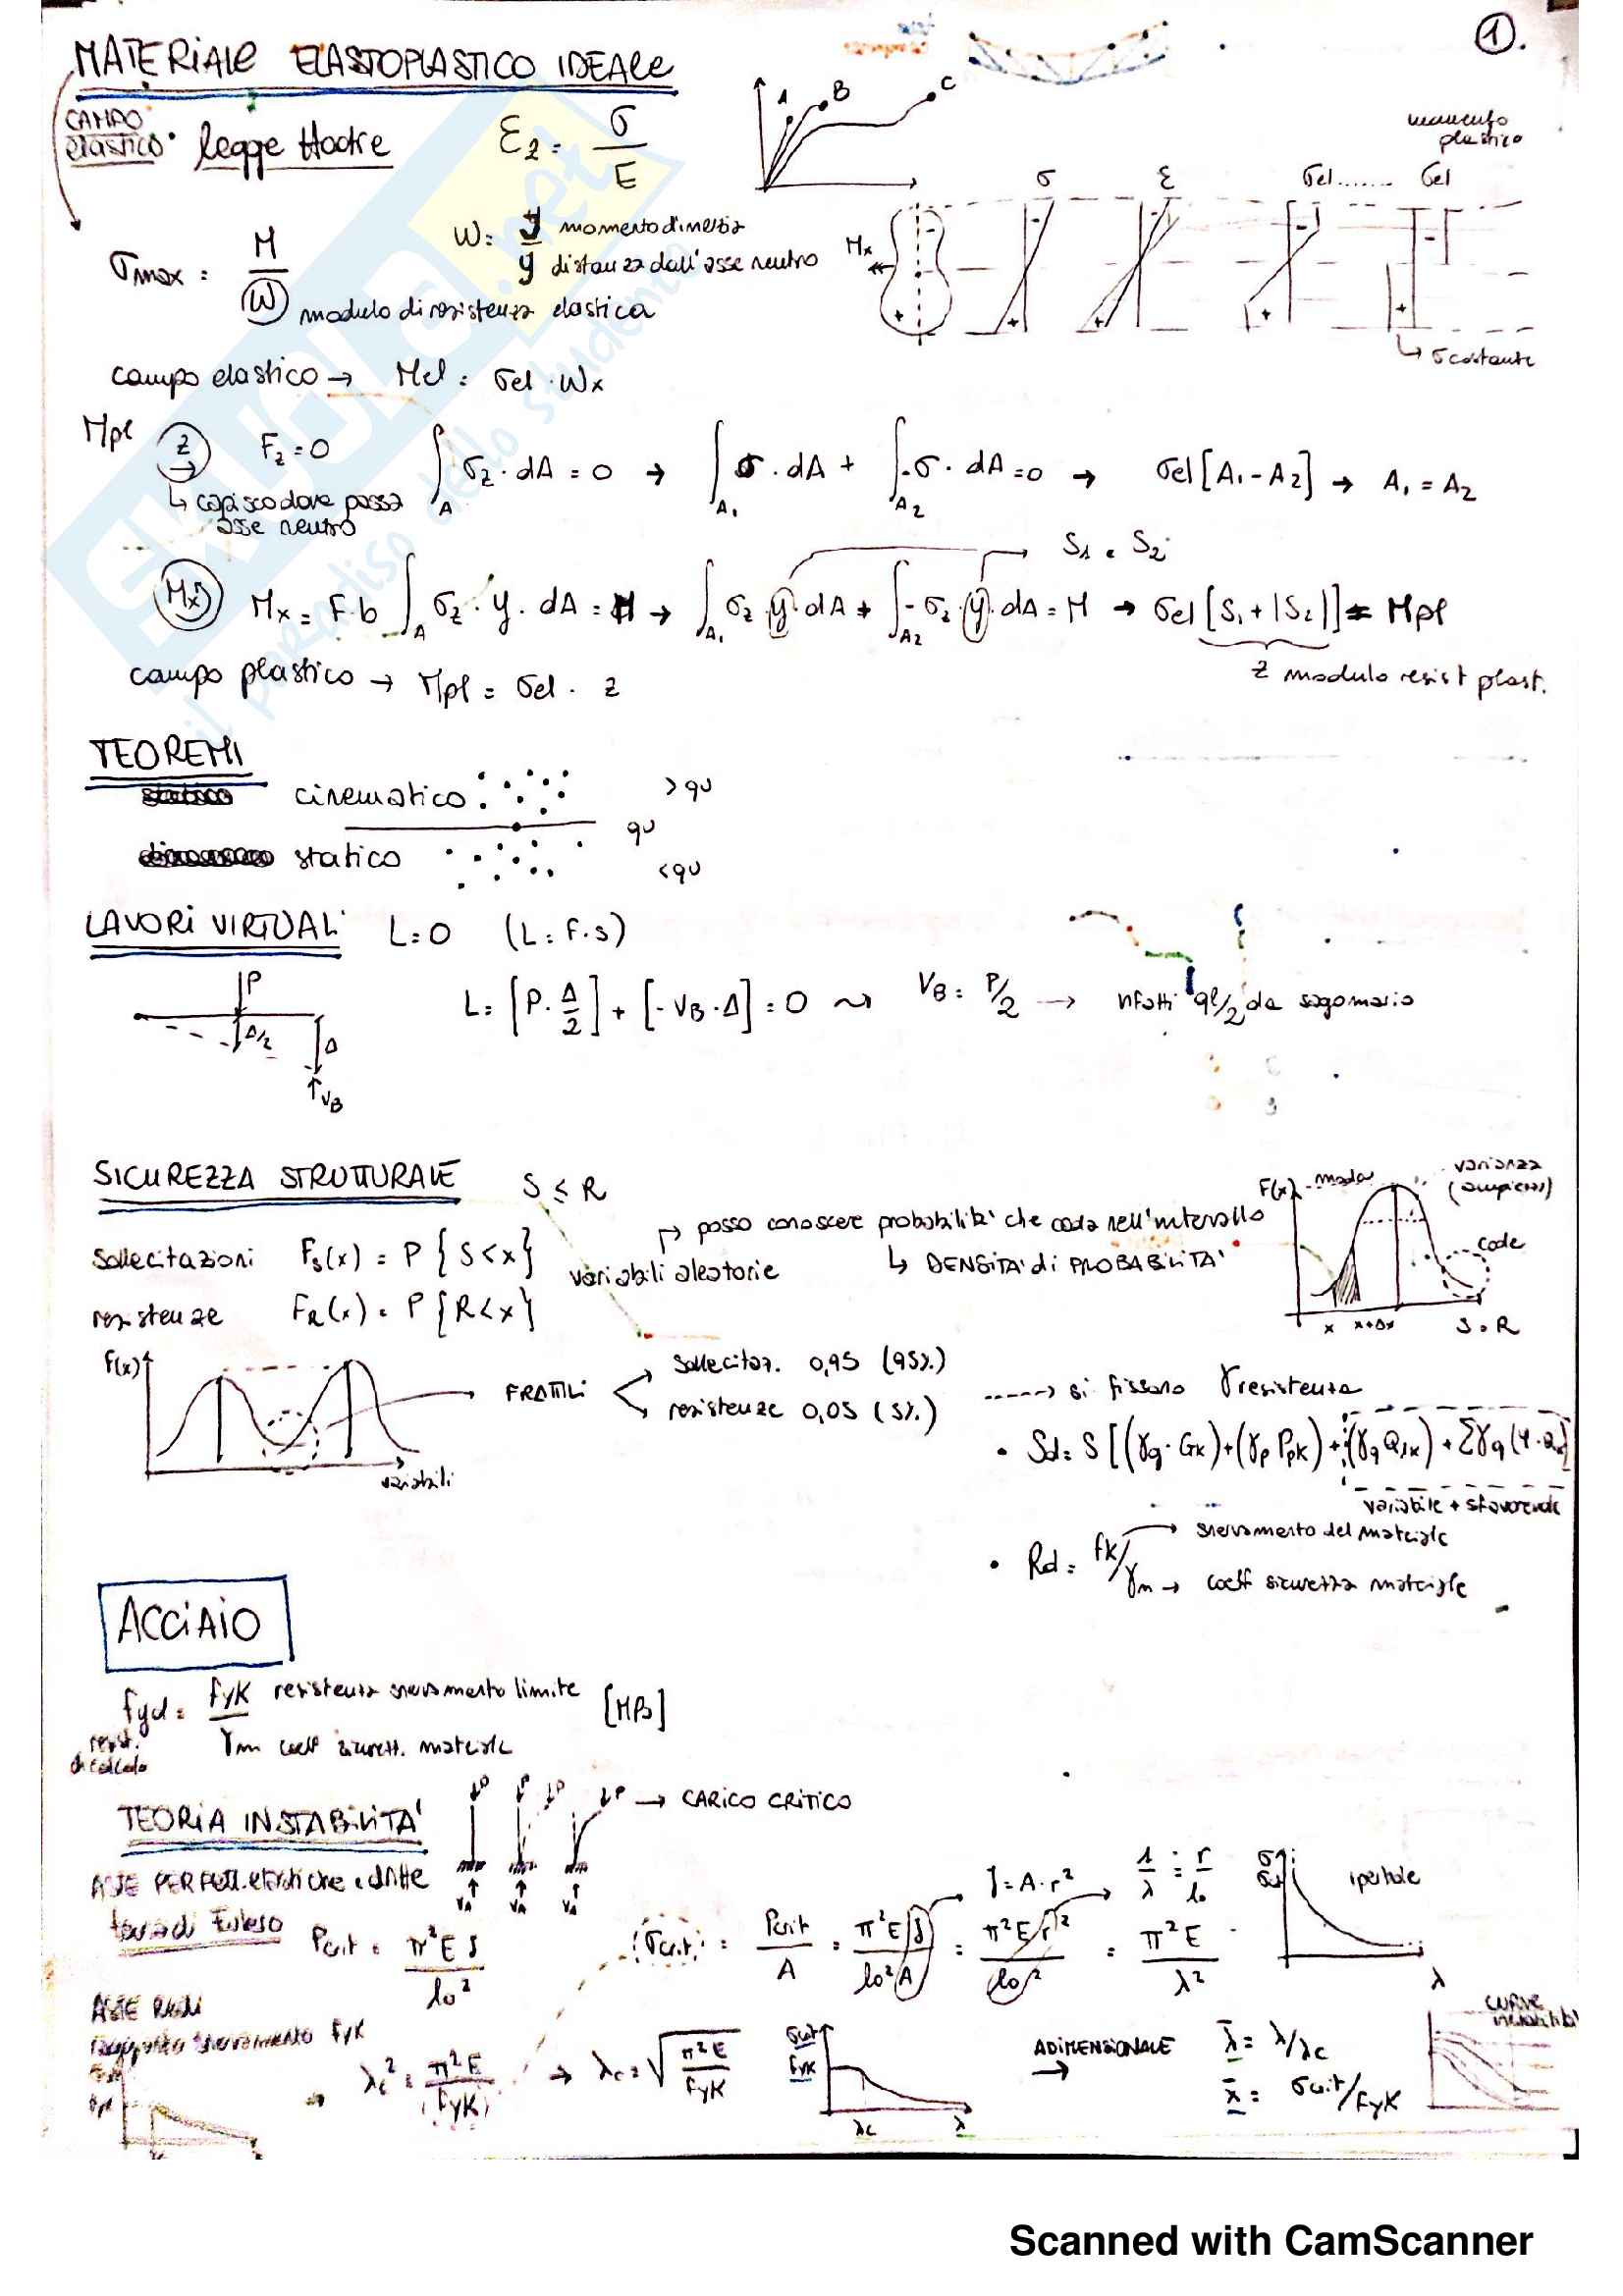 1.
MATERIALE ELASTOPLASTICO IDEALE
CAMPO elastico legge Hooke εz = σ/E
A B C
momento plastico
σ ε σel ....... σel
σmax = M/W modulo di resistenza elastica
W = J/y momento d'inerzia
distanza dall'asse neutro
Mx
- +
+
+
+
- +
↳ σ costante
campo elastico → Mel = σel · Wx
Mpl z → Fz = 0 ∫A σz · dA = 0 → ∫A1 σ · dA + ∫A2 -σ · dA = 0 → σel [A1 - A2] → A1 = A2
↳ capisco dove passa
asse neutro
→ S1 e S2
Mx Mx = F·b ∫A σz · y · dA = M → ∫A1 σz y dA + ∫A2 -σz y dA = M → σel [S1 + |S2|] = Mpl
z modulo resist plast.
campo plastico → Mpl = σel · z
TEOREMI
cinematico > qu
qu
statico < qu
LAVORI VIRTUALI L = 0 (L = F·s)
P Δ/2 Δ ↑VB
L = [P · Δ/2] + [- VB · Δ] = 0 ⇝ VB = P/2 → infatti ql/2 da sagomario
SICUREZZA STRUTTURALE S ≤ R
sollecitazioni Fs(x) = P {S<x}
resistenze FR(x) = P {R<x}
variabili aleatorie
↱ posso conoscere probabilità che cada nell'intervallo
↳ DENSITA' di PROBABILITA'
F(x) moda varianza (ampiezza)
code
x x+Δx S o R
F(x) variabili
FRATTILI
sollecitaz. 0,95 (95%)
resistenze 0,05 (5%)
-----> si fissano γ resistenza
• Sd = S [(γg · Gk) + (γp Ppk) + (γq Q1k) + Σγq (ψ · Qk)]
variabile + sfavorevole
• Rd = fk/γm
→ snervamento del materiale
→ coeff sicurezza materiale
ACCIAIO
fyd = fyk/γm [MPa]
resistenza snervamento limite
coeff sicurezz. materiale
resist. di calcolo
TEORIA INSTABILITA'
↓P ↓P ↓P ↓P → CARICO CRITICO
VA VA VA
ASTE PERFETT. elastiche e dritte
teoria di Eulero Pcrit = π²EJ/lo²
σcrit = Pcrit/A = π²EJ/lo²A = π²E r²/lo² = π²E/λ²
J = A·r²
1/λ = r/lo
iperbole
λ
ASTE REALI
raggiunto snervamento fyk
→ λc² = π²E/fyk → λc = √π²E/fyk
σcrit fyk λc λ
ADIMENSIONALE →
λ̄ = λ/λc
x̄ = σcrit/fyk
curve instabilità
Scanned with CamScanner
skuola.net
il paradiso dello studente